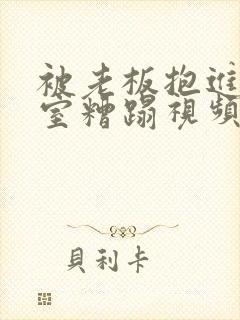 被老板抱進
室糟蹋視頻
貝利卡